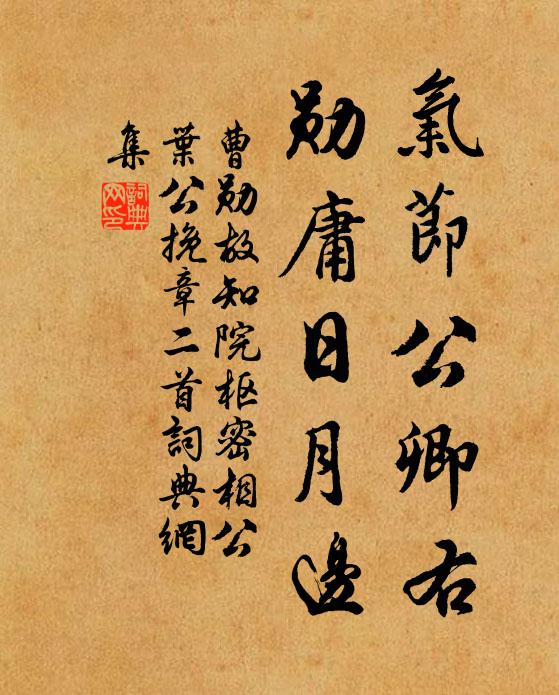 氣節公卿右
勛庸日月邊
曹勛故知院枢密相公
葉公挽章二首詞典網
集
詞典
网印